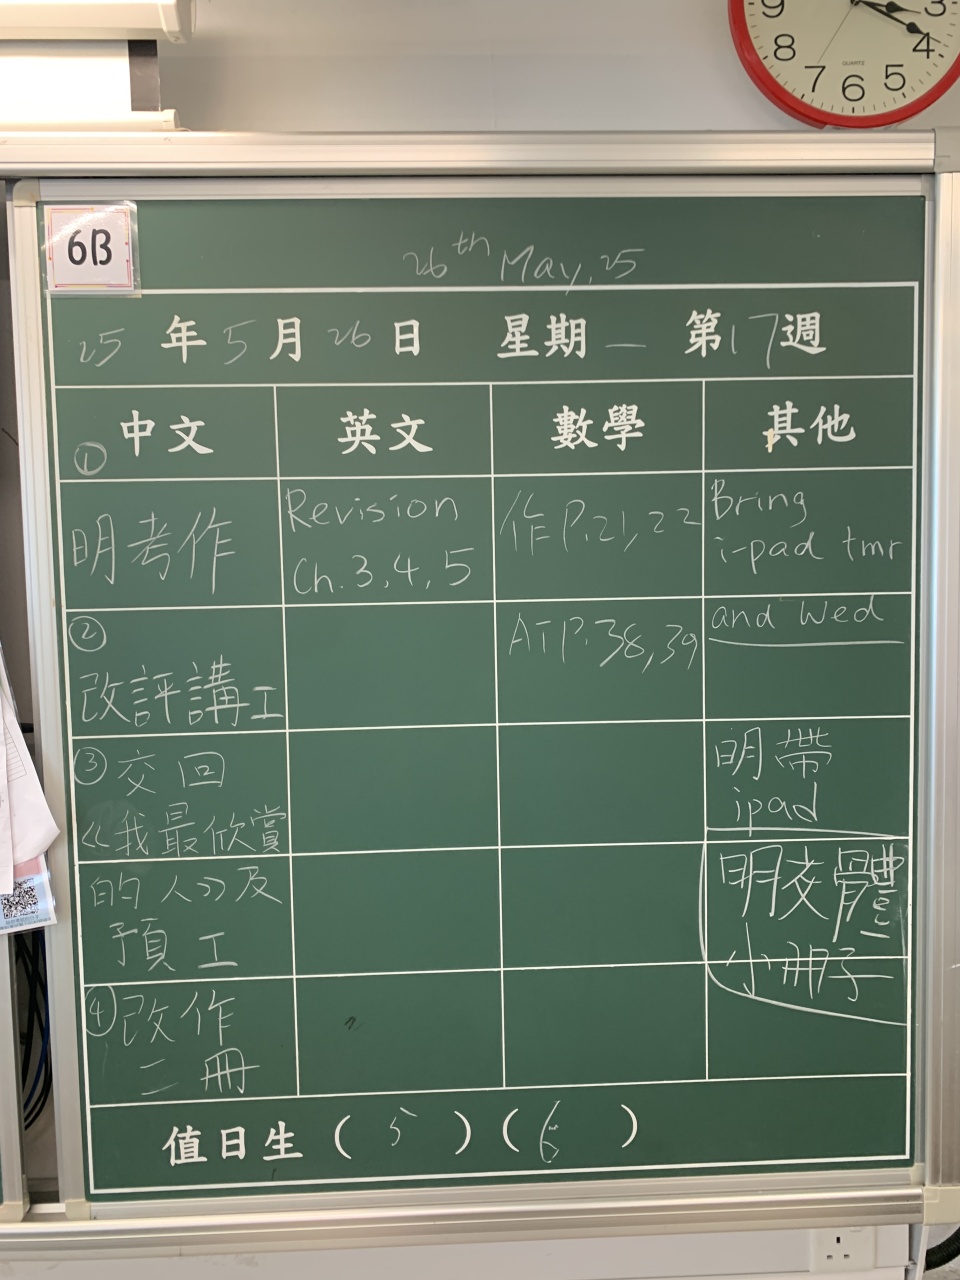 9
3
8
4
7
6
5
QUARTZ
6B
26th May, 25
25 年 5 月 26 日 星期一 第17週
中文 英文 數學 其他
①
明考作
②
改評講工
③ 交回
《我最欣賞
的人》及
預工
④ 改作
二冊
Revision
Ch. 3, 4, 5
作 P.21, 22
AT P.38, 39
Bring
i-pad tmr
and Wed
明帶
ipad
明交體
小冊子
值日生 ( 5 ) ( 6 )